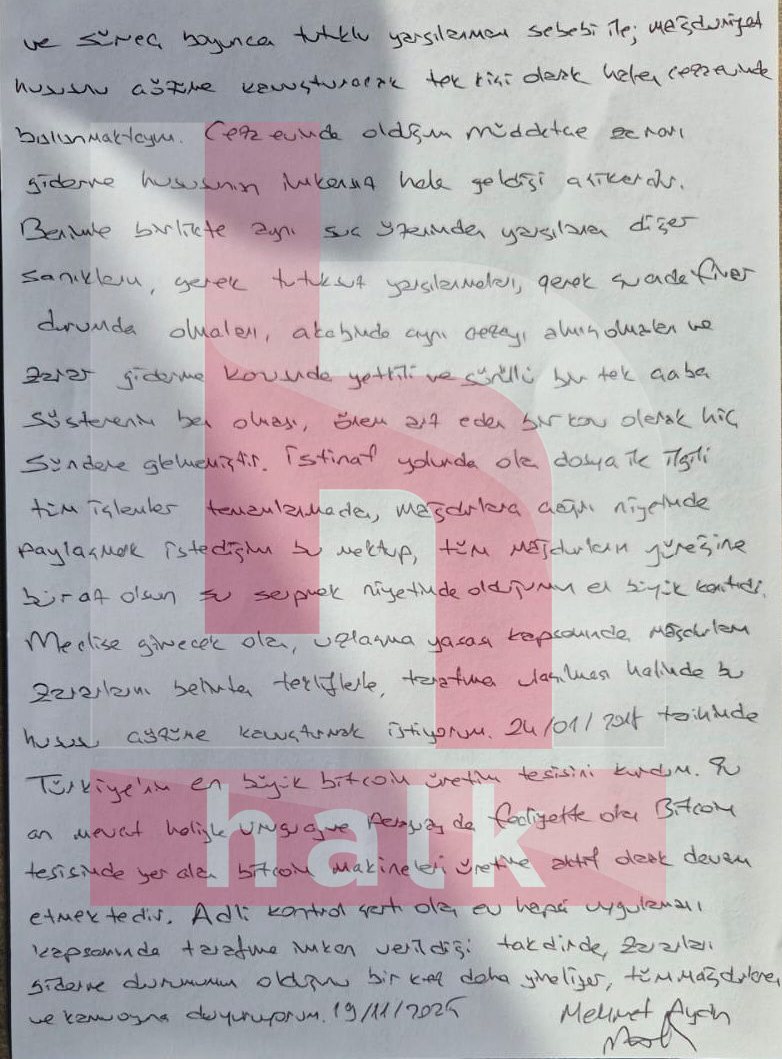 ve süreç boyunca tutuklu yargılanmam sebebi ile; mağduriyet
hususunu çözüme kavuşturacak tek kişi olarak halen cezaevinde
bulunmaktayım. Cezaevinde olduğum müddetçe zararı
giderme hususunun imkansız hale geldiği aşikardır.
Benimle birlikte aynı suç üzerinden yargılanan diğer
sanıkların, gerek tutuksuz yargılanmaları, gerek şu anda firar
durumda olmaları, akabinde aynı cezayı almış olmaları ve
zarar giderme konusunda yetkili ve gönüllü bir tek çaba
gösterenin ben olması, önem arz eden bir konu olarak hiç
gündeme gelmemiştir. İstinaf yolunda olan dosya ile ilgili
tüm işlemler tamamlanmadan, mağdurlara açığı niyetinde
paylaşmak istediğim bu mektup, tüm mağdurların yüreğine
biraz olsun su serpmek niyetinde olduğumun en büyük kanıtıdır.
Meclise girecek olan, uzlaşma yasası kapsamında mağdurların
zararlarını belirten tekliflerle, tarafıma ulaşılması halinde bu
hususu çözüme kavuşturmak istiyorum. 24/01/2018 tarihinde
Türkiye'nin en büyük bitcoin üretim tesisini kurdum. Şu
an mevcut haliyle Uruguay ve Paraguay da faaliyette olan Bitcoin
tesisinde yer alan bitcoin makineleri üretime aktif olarak devam
etmektedir. Adli kontrol şartı olan ev hapsi uygulaması
kapsamında tarafıma imkan verildiği takdirde, zararları
giderme durumumun olduğunu bir kez daha yineliyor, tüm mağdurlara
ve kamuoyuna duyuruyorum. 19/11/2025
Mehmet Aydın
halk